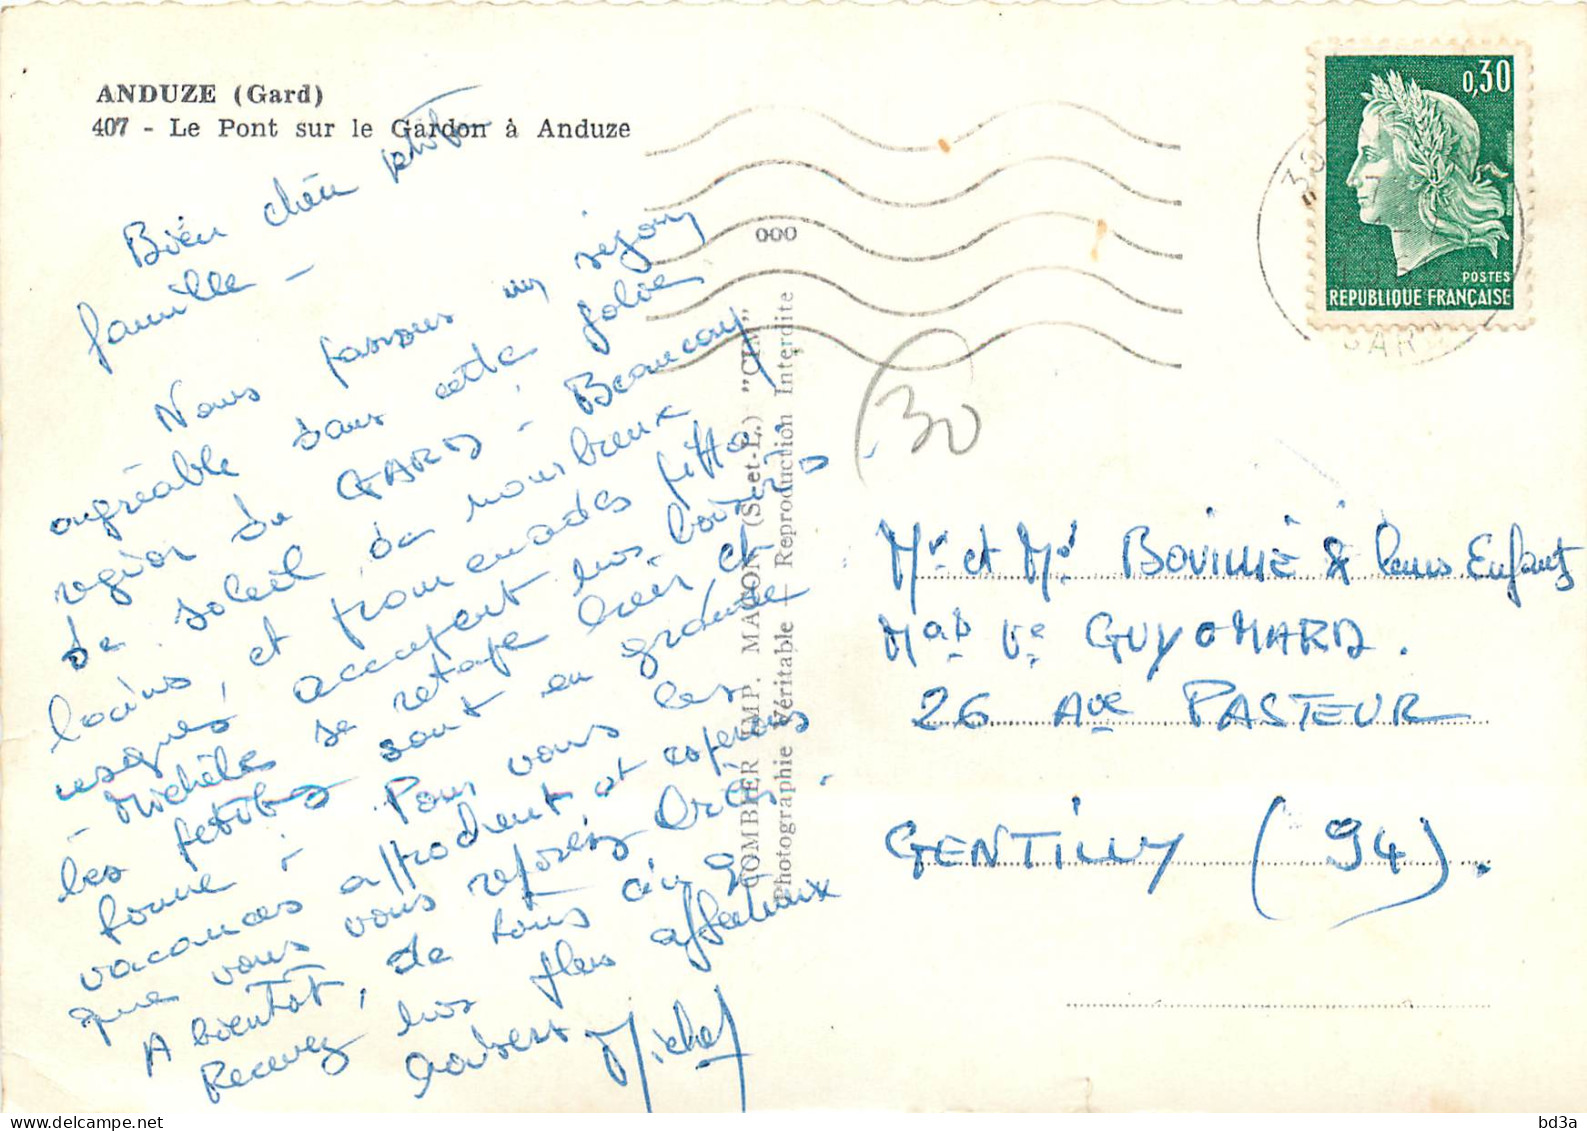 ANDUZE (Gard)
407 - Le Pont sur le Gardon à Anduze
Bien chère petite
famille -
Nous passons un séjour
agréable dans cette jolie
région du GARD - Beaucoup
de soleil, de nombreux
bains, et promenades pitto-
resques, occupent nos loisirs
- Michèle se retape bien et
les petites sont en grande
forme - Pour vous les
vacances approchent et espérons
que vous vous reposerez
A bientôt, de tous cinq
Recevez nos plus affectueux
baisers Michel
COMBIER IMP. MACON (S.-et-L.) "CIM"
Photographie Véritable - Reproduction Interdite
000
0,30
POSTES
REPUBLIQUE FRANÇAISE
30
GARD
30
Mr et Me BOVILLE & leurs Enfants
Ve GUYOMARD.
26 Ave PASTEUR
GENTILLY (94).
bd3a